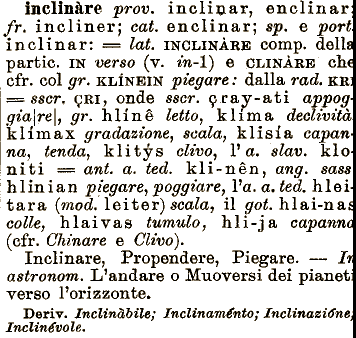 inclinàre prov. inclinar, enclinar;
fr. incliner; cat. enclinar; sp. e port.
inclinar: = lat. INCLINÀRE comp. della
partic. IN verso (v. in-1) e CLINÀRE che
cfr. col gr. KLÍNEIN piegare: dalla rad. KRI
= sscr. ÇRI, onde sscr. çray-ati appog-
gia[re], gr. hlínê letto, klíma declività
klímax gradazione, scala, klisía capan-
na, tenda, klitýs clivo, l'a. slav. klo-
niti = ant. a. ted. kli-nên, ang. sass.
hlinian piegare, poggiare, l'a. a. ted. hlei-
tara (mod. leiter) scala, il got. hlai-nas
colle, hlaivas tumulo, hli-ja capanna
(cfr. Chinare e Clivo).
Inclinare, Propendere, Piegare. — In
astronom. L'andare o Muoversi dei pianeti
verso l'orizzonte.
Deriv. Inclinàbile; Inclinaménto; Inclinazióne,
Inclinévole.